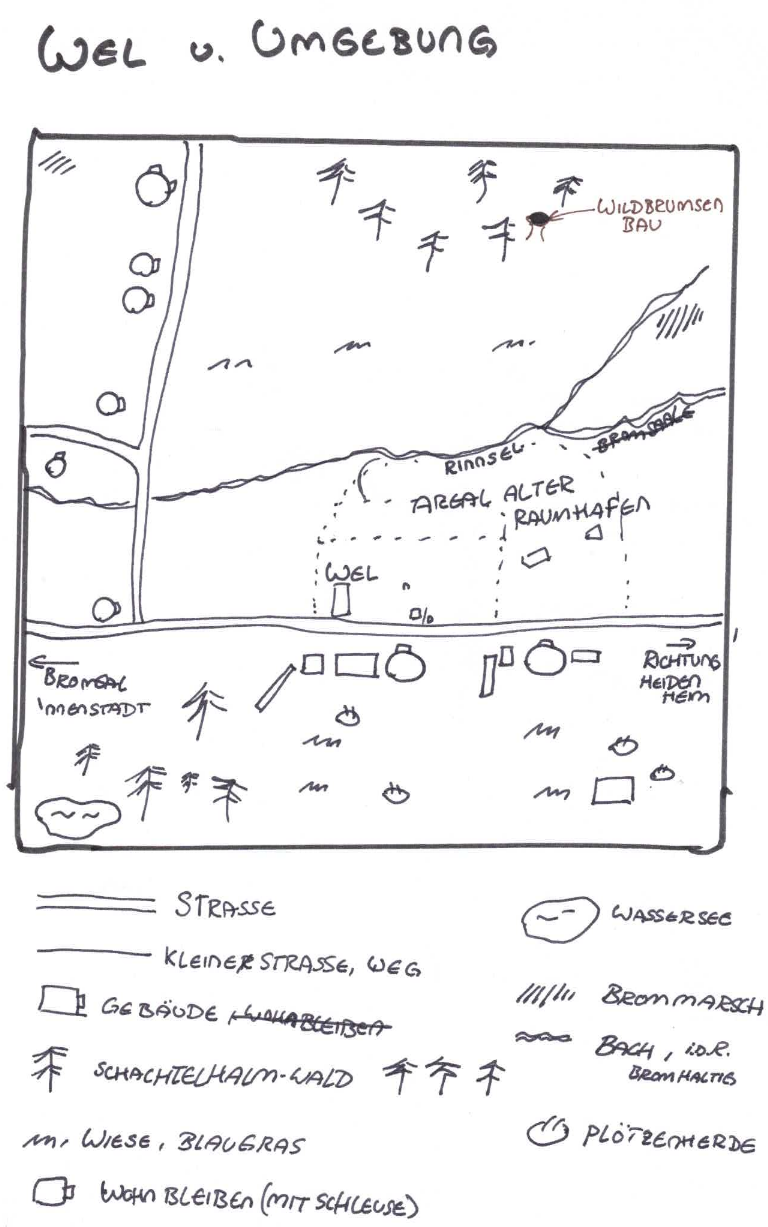 WEL u. UMGEBUNG
WILDBRUMSEN
BAU
RINNSEL
BROMSAALE
AREAL ALTER
RAUMHAFEN
WEL
BROMGAL
INNENSTADT
RICHTUNG
HEIDEN
HEIM
STRASSE
KLEINE STRASSE, WEG
GEBÄUDE, WOHNBLEIBEN
SCHACHTELHALM-WALD
WIESE, BLAUGRAS
WOHNBLEIBEN (MIT SCHLEUSE)
WASSERSEE
BROMMARSCH
BACH, i.d.R.
BROMHALTIG
PLÖTZENHERDE